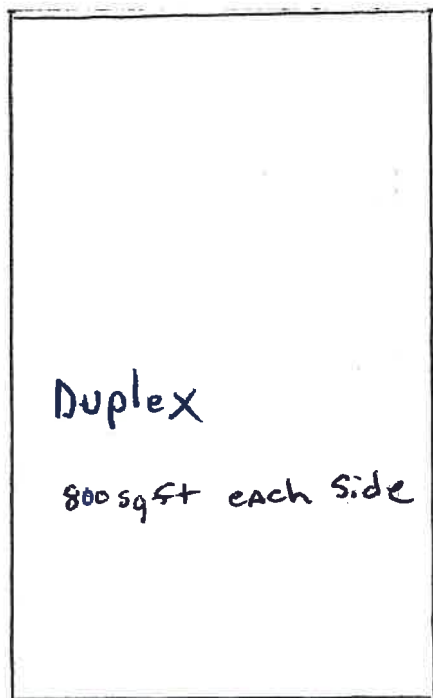 Duplex
800 sq ft each side